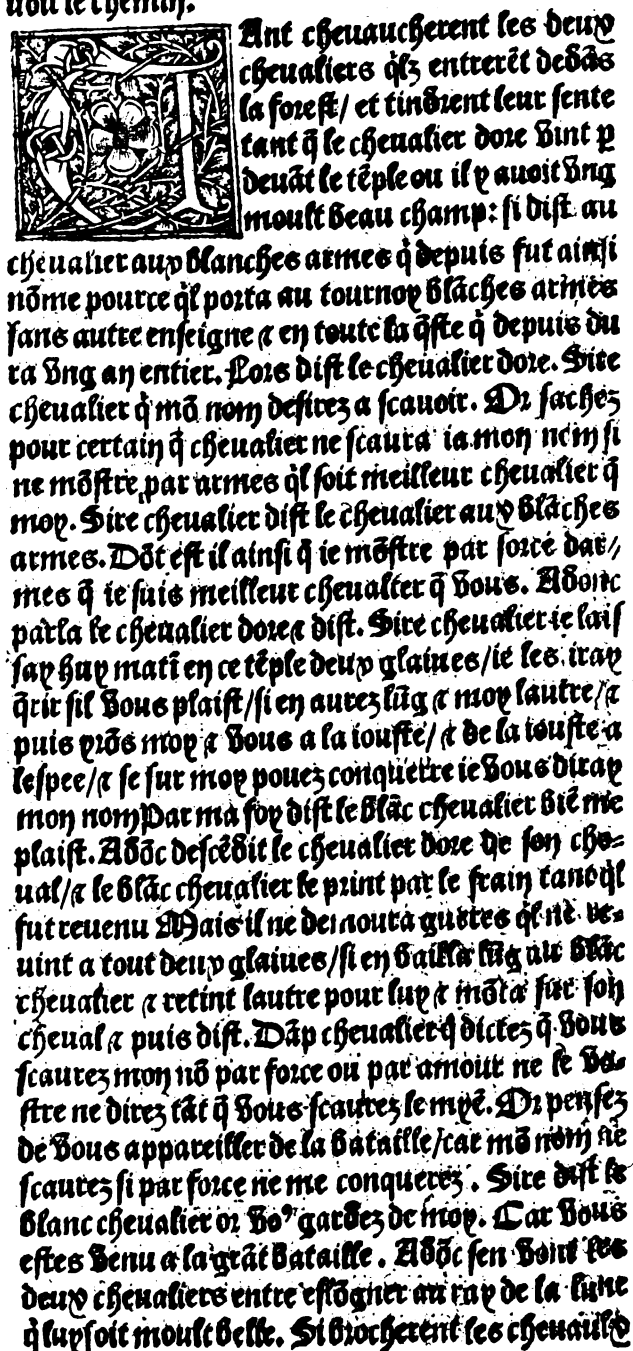 uoit le chemin.
TAnt cheuaucherent les deux
cheualiers q̃lz entrerēt dedãs
la forest/ et tindrent leur sente
tant q̃ le cheualier dore vint p
deuãt le tẽple ou il y auoit vng
moult beau champ: si dist au
cheualier aux blanches armes q̃ depuis fut ainsi
nõme pource q̃l porta au tournoy blãches armes
sans autre enseigne ⁊ en toute la q̃ste q̃ depuis du
ra vng an entier. Lors dist le cheualier dore. Sire
cheualier q̃ mõ nom desirez a scauoir. Or sachez
pour certain q̃ cheualier ne scaura ia mon nom si
ne mõstre par armes q̃l soit meilleur cheualier q̃
moy. Sire cheualier dist le cheualier aux blãches
armes. Dõt est il ainsi q̃ ie mõstre par force dar/
mes q̃ ie suis meilleur cheualier q̃ vous. Adonc
parla le cheualier dore ⁊ dist. Sire cheualier ie lais
say huy matĩ en ce tẽple deux glaiues/ie les iray
q̃rir sil vous plaist/si en aurez lũg ⁊ moy lautre/⁊
puis yrõs moy ⁊ vous a la iouste/⁊ de la iouste a
lespee/⁊ se sur moy pouez conquerre ie vous diray
mon nom Par ma foy dist le blãc cheualier biẽ me
plaist. Adõc descẽdit le cheualier dore de son che=
ual/⁊ le blãc cheualier le print par le frain tant q̃l
fut reuenu Mais il ne demoura gueres q̃l ne re=
uint a tout deux glaiues/si en bailla lũg au blãc
cheualier ⁊ retint lautre pour luy ⁊ mõta sur son
cheual ⁊ puis dist. Dãp cheualier q̃ dictez q̃ vous
scaurez mon nõ par force ou par amour ne le vo=
stre ne direz tãt q̃ vous scaurez le myẽ. Or pensez
de vous appareiller de la bataille/car mõ nom ne
scaurez si par force ne me conquerez. Sire dist le
blanc cheualier or voꝰ gardez de moy. Car vous
estes venu a la grãt bataille. Adõc sen vont les
deux cheualiers entre eslõgner au ray de la lune
q̃ luysoit moult belle. Si brocherent les cheuaulx